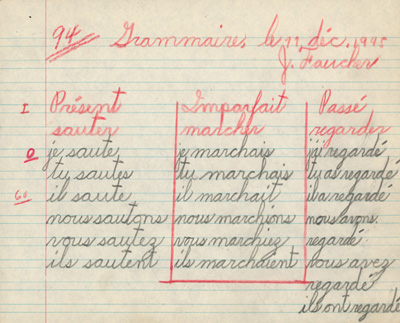 94 Grammaire. le 11 déc. 1945
J. Faucher
I Présent Imparfait Passé
sauter marcher regarder
0 je saute je marchais j'ai regardé
tu sautes tu marchais tu as regardé
il saute il marchait il a regardé
nous sautons nous marchions nous avons
vous sautez vous marchiez regardé
ils sautent ils marchaient vous avez
regardé
ils ont regardé